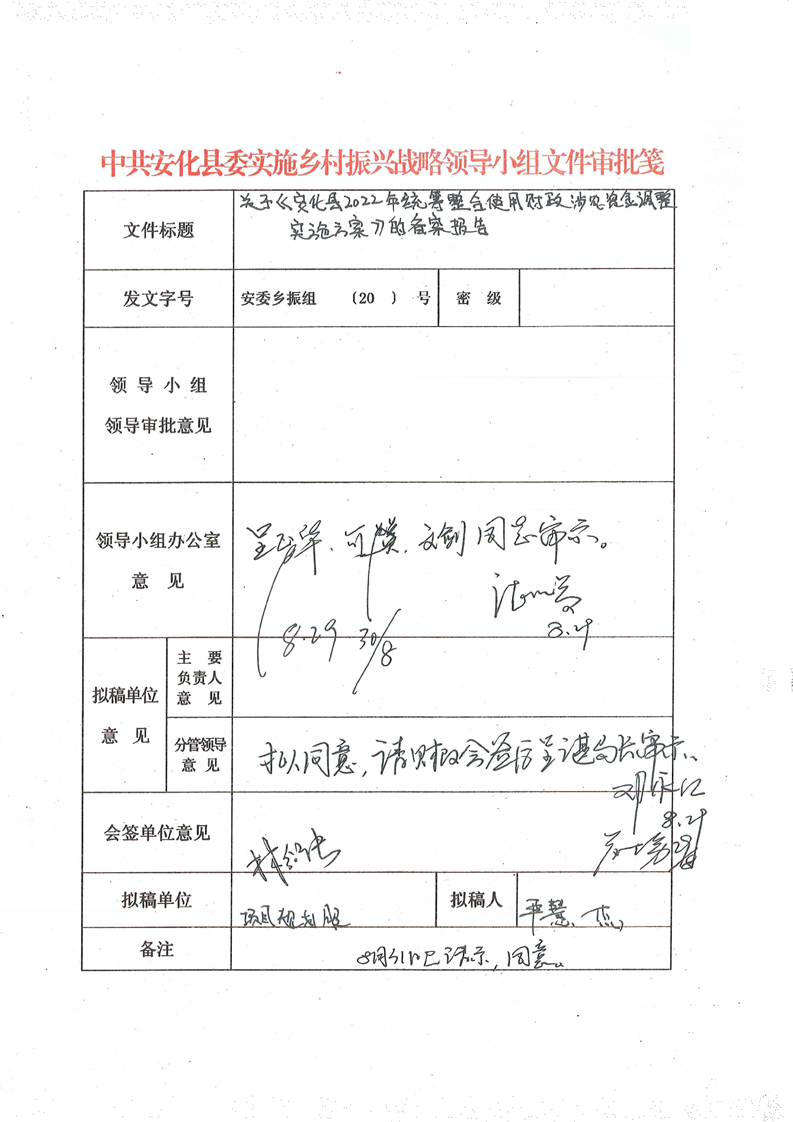 中共安化县委实施乡村振兴战略领导小组文件审批笺
文件标题
关于《安化县2022年统筹整合使用财政涉农资金调整
实施方案》的备案报告
发文字号
安委乡振组 〔20 〕 号
密 级
领 导 小 组
领导审批意见
领导小组办公室
意 见
呈 华、可 、文剑同志审示。
8.29
30/8
8.29
拟稿单位
意 见
主 要
负责人
意 见
分管领导
意 见
拟同意,请财政会签后呈谌局长审示。
邓 仁
8.29
会签单位意见
29/8
拟稿单位
项目规划股
拟稿人
备注
8月31日已请示,同意。